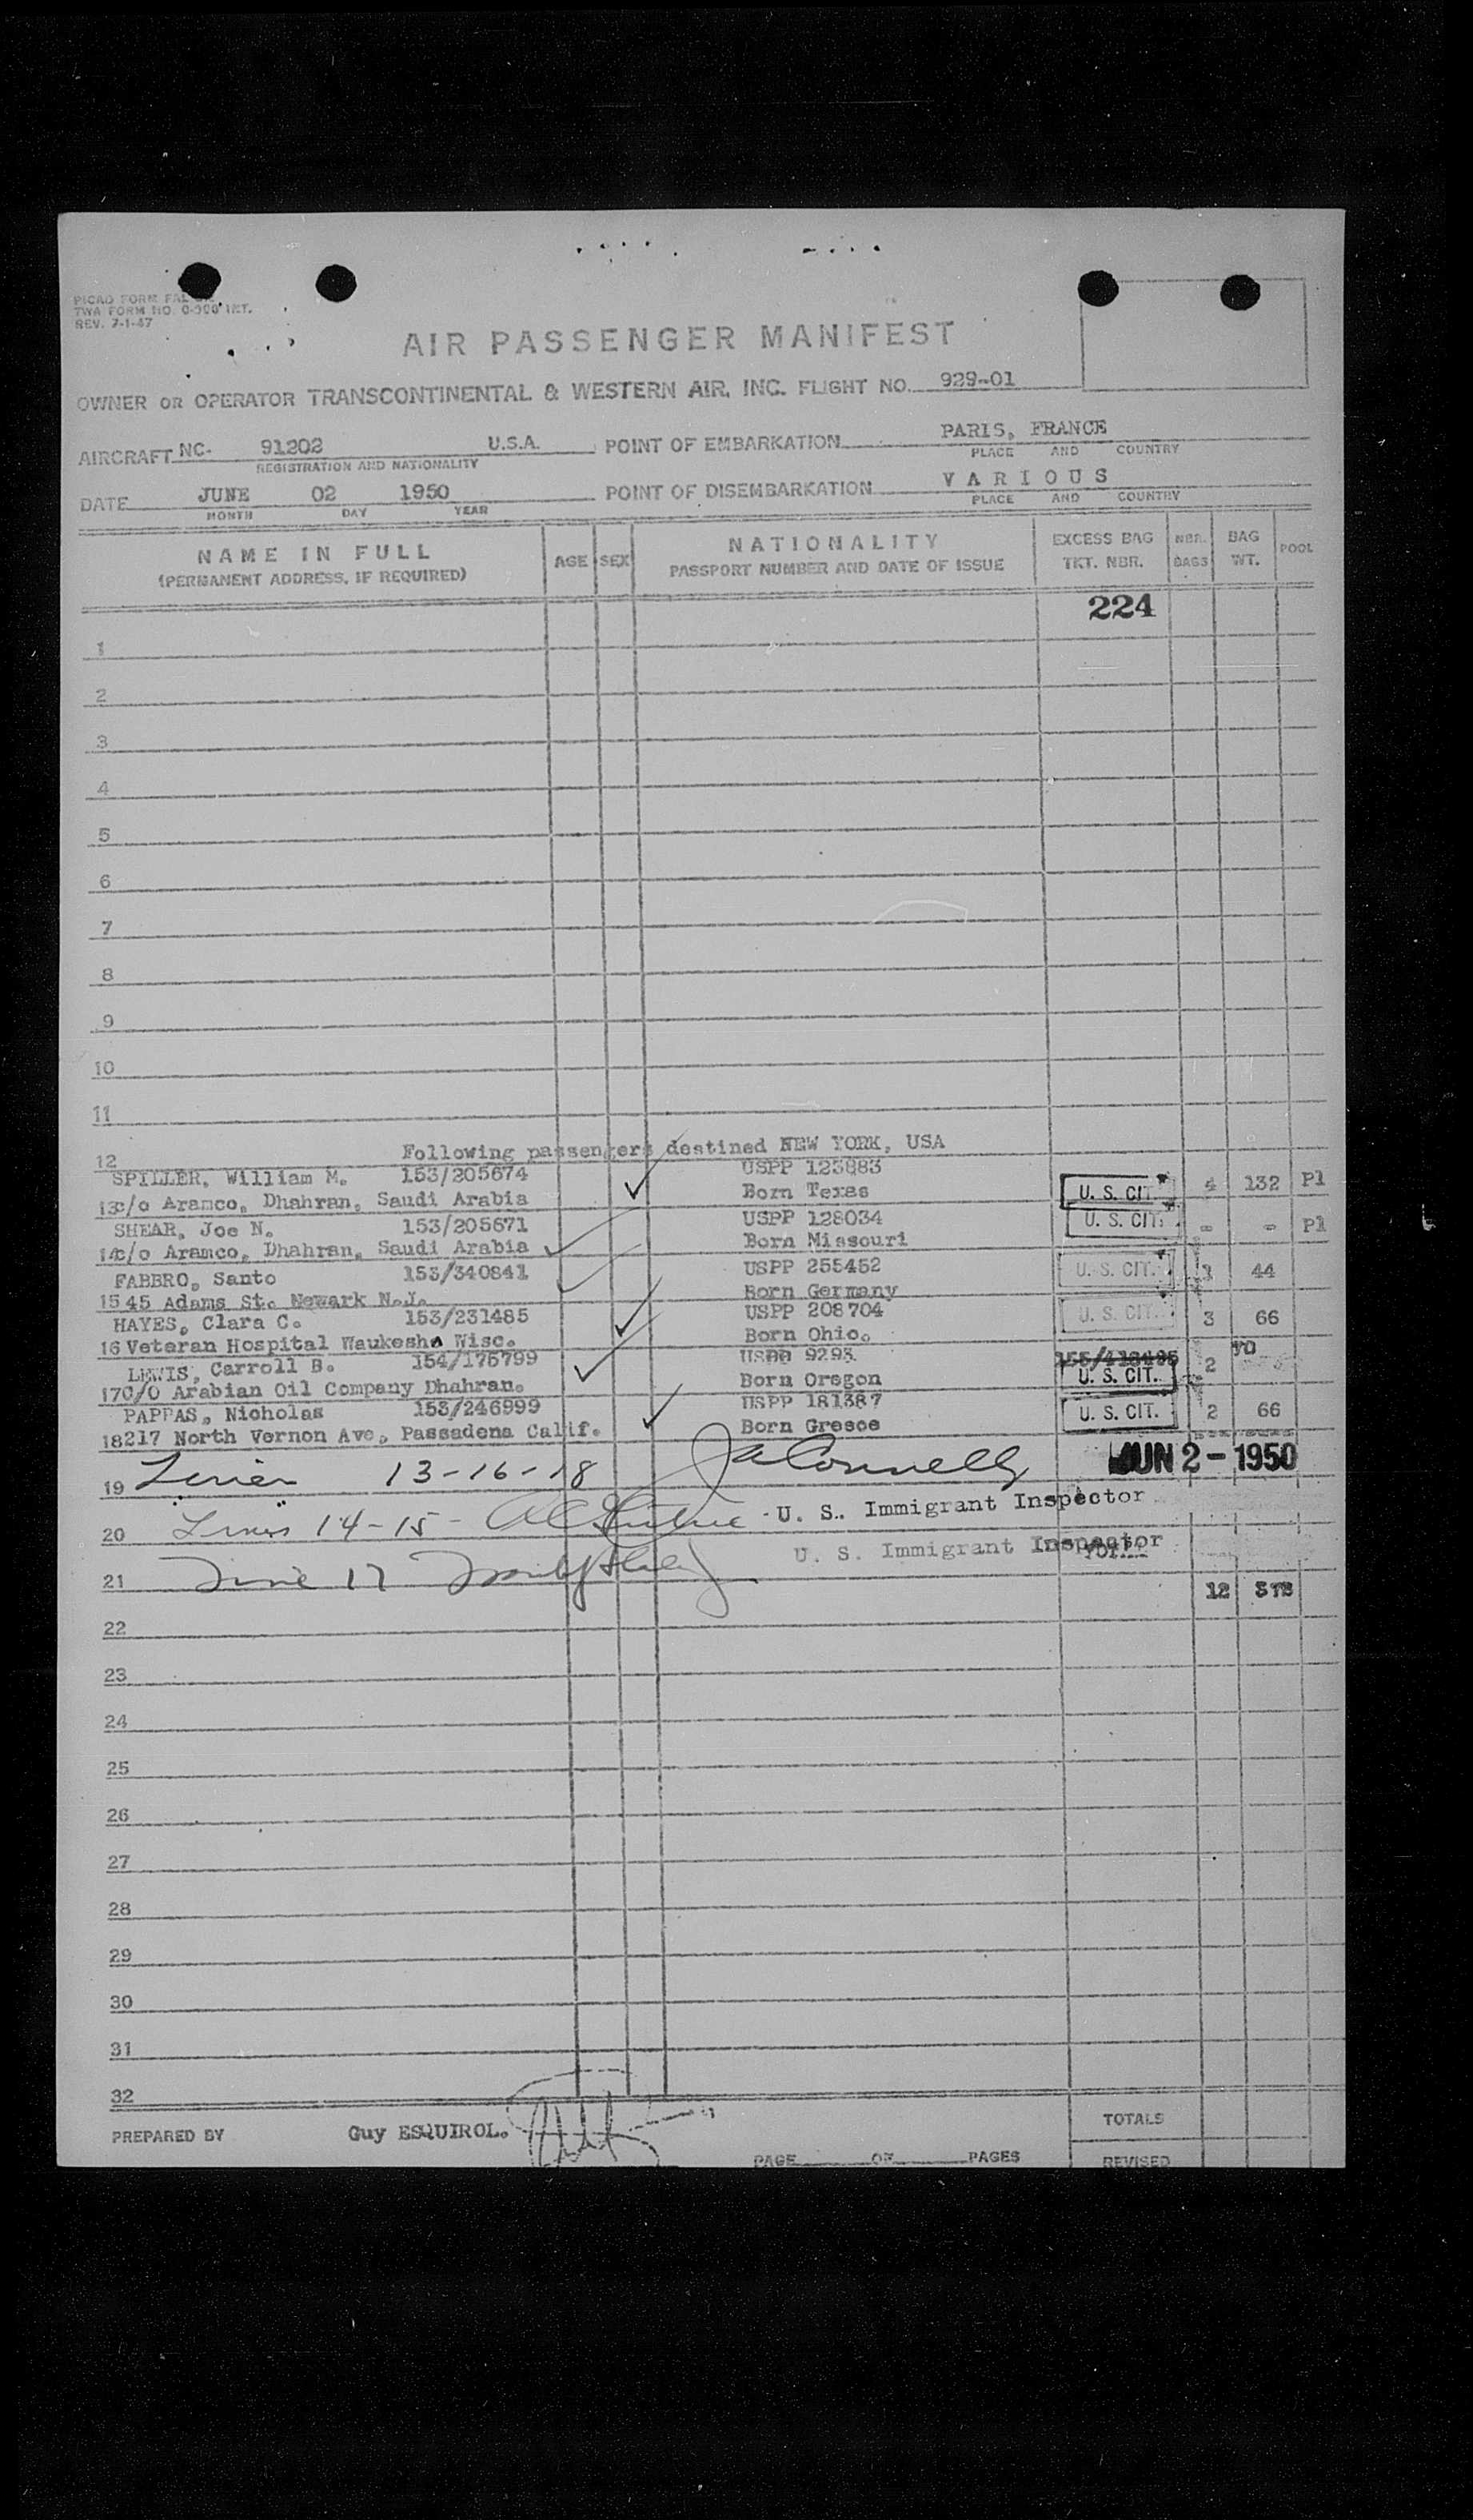 PICAO FORM FAL
TWA FORM NO. 0-900 INT.
REV. 7-1-47
AIR PASSENGER MANIFEST
OWNER OR OPERATOR TRANSCONTINENTAL & WESTERN AIR, INC. FLIGHT NO. 929-01
AIRCRAFT NC- 91202 U.S.A. POINT OF EMBARKATION PARIS, FRANCE
REGISTRATION AND NATIONALITY PLACE AND COUNTRY
DATE JUNE 02 1950 POINT OF DISEMBARKATION VARIOUS
MONTH DAY YEAR PLACE AND COUNTRY
NAME IN FULL AGE SEX NATIONALITY EXCESS BAG NBR. BAG POOL
(PERMANENT ADDRESS, IF REQUIRED) PASSPORT NUMBER AND DATE OF ISSUE TKT. NBR. BAGS WT.
224
1
2
3
4
5
6
7
8
9
10
11
12 Following passengers destined NEW YORK, USA
SPILLER, William M. 153/205674 USPP 123883
13 c/o Aramco, Dhahran, Saudi Arabia Born Texas U. S. CIT. 4 132 Pl
SHEAR, Joe N. 153/205671 USPP 128034 U. S. CIT. - - Pl
14 c/o Aramco, Dhahran, Saudi Arabia Born Missouri
FABBRO, Santo 153/340841 USPP 255452 U. S. CIT. 1 44
15 45 Adams St. Newark N.J. Born Germany
HAYES, Clara C. 153/231485 USPP 208704 U. S. CIT. 3 66
16 Veteran Hospital Waukesha Wisc. Born Ohio.
LEWIS, Carroll B. 154/175799 9293 2 70
17 C/O Arabian Oil Company Dhahran. Born Oregon U. S. CIT.
PAPPAS, Nicholas 153/246999 USPP 181387 U. S. CIT. 2 66
18 217 North Vernon Ave, Passadena Calif. Born Greece
19 Lines 13-16-18 JA Connelly JUN 2 - 1950
20 Lines 14-15- U. S. Immigrant Inspector
21 Line 17 U. S. Immigrant Inspector
12 378
22
23
24
25
26
27
28
29
30
31
32
PREPARED BY Guy ESQUIROL. TOTALS
PAGE OF PAGES REVISED